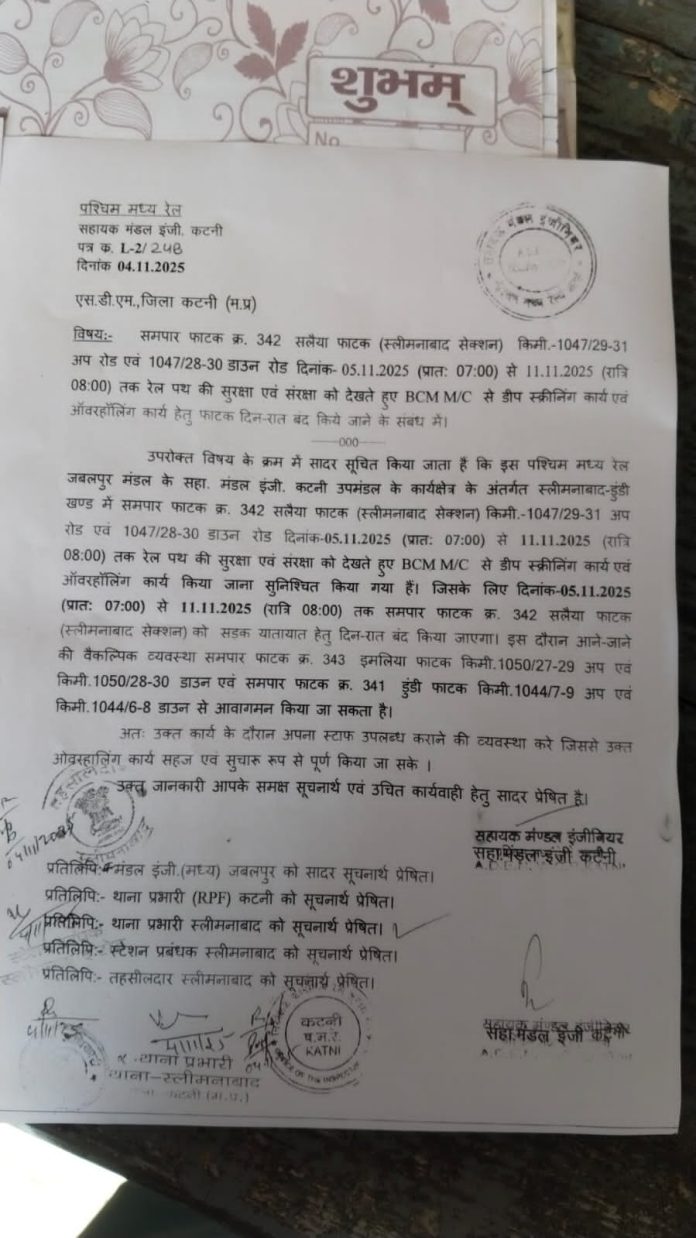 शुभम्
No
पश्चिम मध्य रेल
सहायक मंडल इंजी. कटनी
पत्र क. L-2/ 24B
दिनांक 04.11.2025
एस.डी.एम.,जिला कटनी (म.प्र)
विषय:- समपार फाटक क्र. 342 सलैया फाटक (स्लीमनाबाद सेक्शन) किमी.-1047/29-31
अप रोड एवं 1047/28-30 डाउन रोड दिनांक- 05.11.2025 (प्रातः 07:00) से 11.11.2025 (रात्रि
08:00) तक रेल पथ की सुरक्षा एवं संरक्षा को देखते हुए BCM M/C से डीप स्क्रीनिंग कार्य एवं
ऑवरहॉलिंग कार्य हेतु फाटक दिन-रात बंद किये जाने के संबंध में।
-----000-----
उपरोक्त विषय के क्रम में सादर सूचित किया जाता है कि इस पश्चिम मध्य रेल
जबलपुर मंडल के सहा. मंडल इंजी. कटनी उपमंडल के कार्यक्षेत्र के अंतर्गत स्लीमनाबाद-डुंडी
खण्ड में समपार फाटक क्र. 342 सलैया फाटक (स्लीमनाबाद सेक्शन) किमी.-1047/29-31 अप
रोड एवं 1047/28-30 डाउन रोड दिनांक-05.11.2025 (प्रातः 07:00) से 11.11.2025 (रात्रि
08:00) तक रेल पथ की सुरक्षा एवं संरक्षा को देखते हुए BCM M/C से डीप स्क्रीनिंग कार्य एवं
ऑवरहॉलिंग कार्य किया जाना सुनिश्चित किया गया हैं। जिसके लिए दिनांक-05.11.2025
(प्रातः 07:00) से 11.11.2025 (रात्रि 08:00) तक समपार फाटक क्र. 342 सलैया फाटक
(स्लीमनाबाद सेक्शन) को सडक यातायात हेतु दिन-रात बंद किया जाएगा। इस दौरान आने-जाने
की वैकल्पिक व्यवस्था समपार फाटक क्र. 343 इमलिया फाटक किमी.1050/27-29 अप एवं
किमी.1050/28-30 डाउन एवं समपार फाटक क्र. 341 डुंडी फाटक किमी.1044/7-9 अप एवं
किमी.1044/6-8 डाउन से आवागमन किया जा सकता है।
अतः उक्त कार्य के दौरान अपना स्टाफ उपलब्ध कराने की व्यवस्था करे जिससे उक्त
ओवरहालिंग कार्य सहज एवं सुचारू रूप से पूर्ण किया जा सके ।
उक्त जानकारी आपके समक्ष सूचनार्थ एवं उचित कार्यवाही हेतु सादर प्रेषित है।
सहायक मण्डल इंजीनियर
सहा.मंडल इंजी कटनी
प्रतिलिपि:- मंडल इंजी.(मध्य) जबलपुर को सादर सूचनार्थ प्रेषित।
प्रतिलिपि:- थाना प्रभारी (RPF) कटनी को सूचनार्थ प्रेषित।
प्रतिलिपि:- थाना प्रभारी स्लीमनाबाद को सूचनार्थ प्रेषित।
प्रतिलिपि:- स्टेशन प्रबंधक स्लीमनाबाद को सूचनार्थ प्रेषित।
प्रतिलिपि:- तहसीलदार स्लीमनाबाद को सूचनार्थ प्रेषित।
सहायक मंडल इंजीनियर
सहा.मंडल इंजी कटनी
कटनी
प.म.रे.
KATNI
थाना प्रभारी
थाना-स्लीमनाबाद